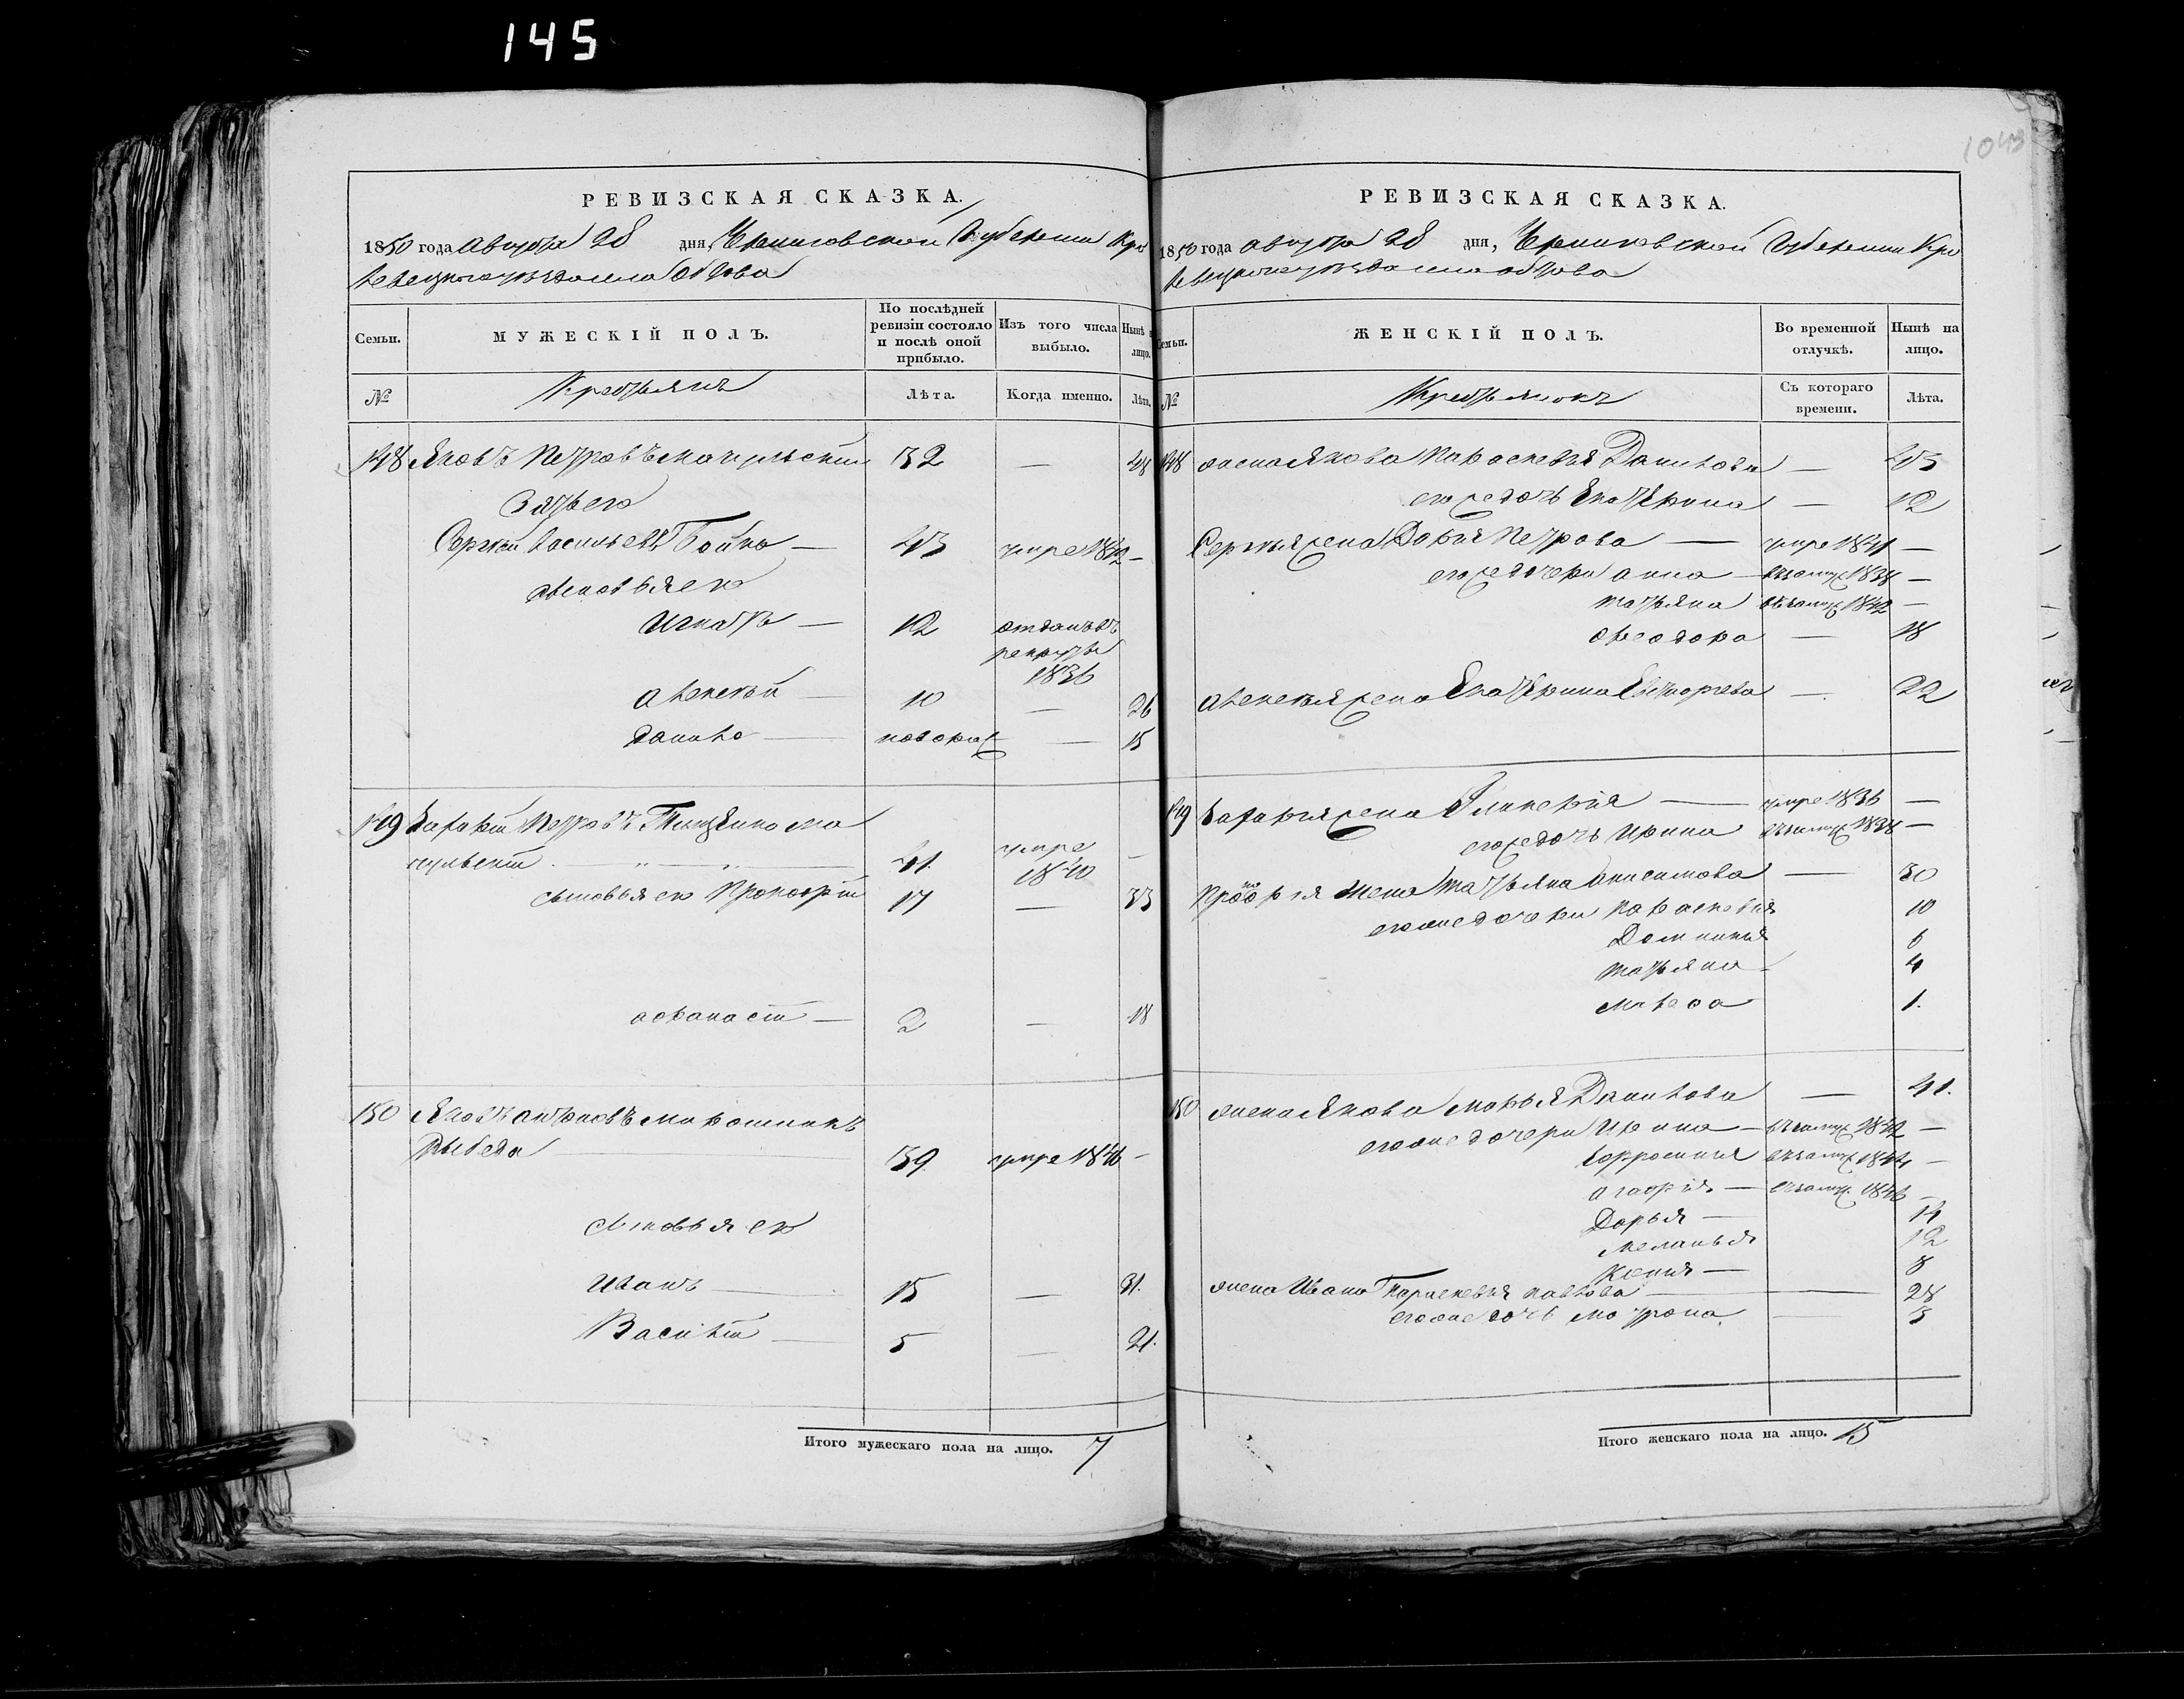 145
1043
РЕВИЗСКАЯ СКАЗКА.
1850 года августа 28 дня, Черниговской Губернии Кро
левецкого уезда села Обтова
Семьи. МУЖЕСКІЙ ПОЛЪ. По послѣдней ревизіи состояло и послѣ оной прибыло. Изъ того числа выбыло. Нынѣ на лицо.
№ Крестьянъ Лѣта. Когда именно. Лѣта.
148 Яковъ Петровъ 32 — 48
Зять его
Сергѣй Васильевъ Бойко — 43 умре 1842 —
сыновья его
Игнатъ — 12 отданъ въ
рекруты
1836
Алексѣй — 10 — 26
Данило — новорож — 15
149 Захарій Петровъ
41 умре
1840 —
сыновья его Прокофій 17 — 33
Афанасій — 2 — 18
150 Яковъ Мирошникъ
39 умре 1846 —
сыновья его
Иванъ — 15 — 31.
Василій — 5 — 21.
Итого мужескаго пола на лицо. 7
РЕВИЗСКАЯ СКАЗКА.
1850 года августа 28 дня, Черниговской Губернии Кро
левецкого уезда села Обтова
Семьи. ЖЕНСКІЙ ПОЛЪ. Во временной отлучкѣ. Нынѣ на лицо.
№ Крестьянокъ Съ котораго времени. Лѣта.
148 жена Якова Параскевія Данилова — 43
егоже дочь Екатерина — 12
Сергѣя жена Дарія Петрова — умре 1841 —
егоже дочери Анна — въ замуж 1838 —
Татьяна въ замуж 1842 —
Феодора — 18
Алексѣя жена Екатерина — 22
149 Захарія жена Гликерія — умре 1836 —
егоже дочь Ирина въ замуж 1838 —
Прокофія жена Татьяна Анисимова — 30
егоже дочери Параскевія 10
Домникія 6
Татьяна — 4
1.
150 жена Якова Марья Данилова — 41.
егоже дочери Ирина — въ замуж 1842 —
Ефросинія въ замуж 1844 —
Агафія — въ замуж. 1846 —
Дарья — 14
Меланья 12
Ксенія — 8
жена Ивана Параскевія Павлова — 28
егоже дочь Мотрона — 3
Итого женскаго пола на лицо. 15